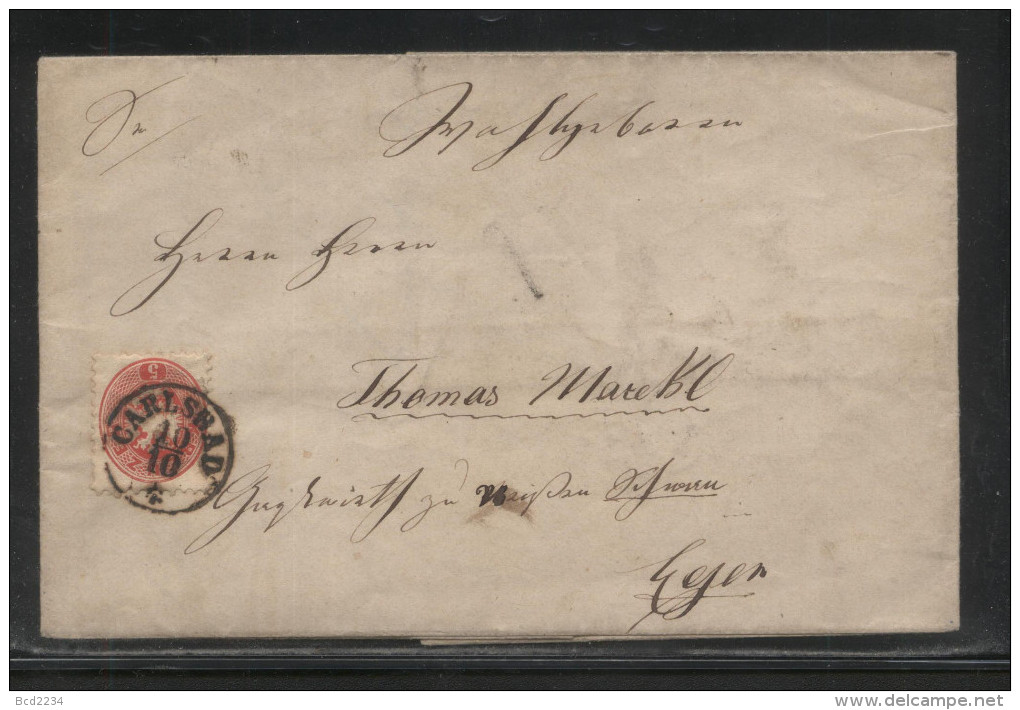 Sr Wohlgeboren
Herrn Herrn
Thomas Marekl
Gastwirth zu Weißen Schwan
Eger
5
CARLSBAD
10
10
Bcd2234
www.delcampe.net